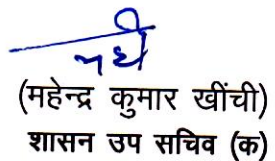 (महेन्द्र कुमार खींची)
शासन उप सचिव (क)